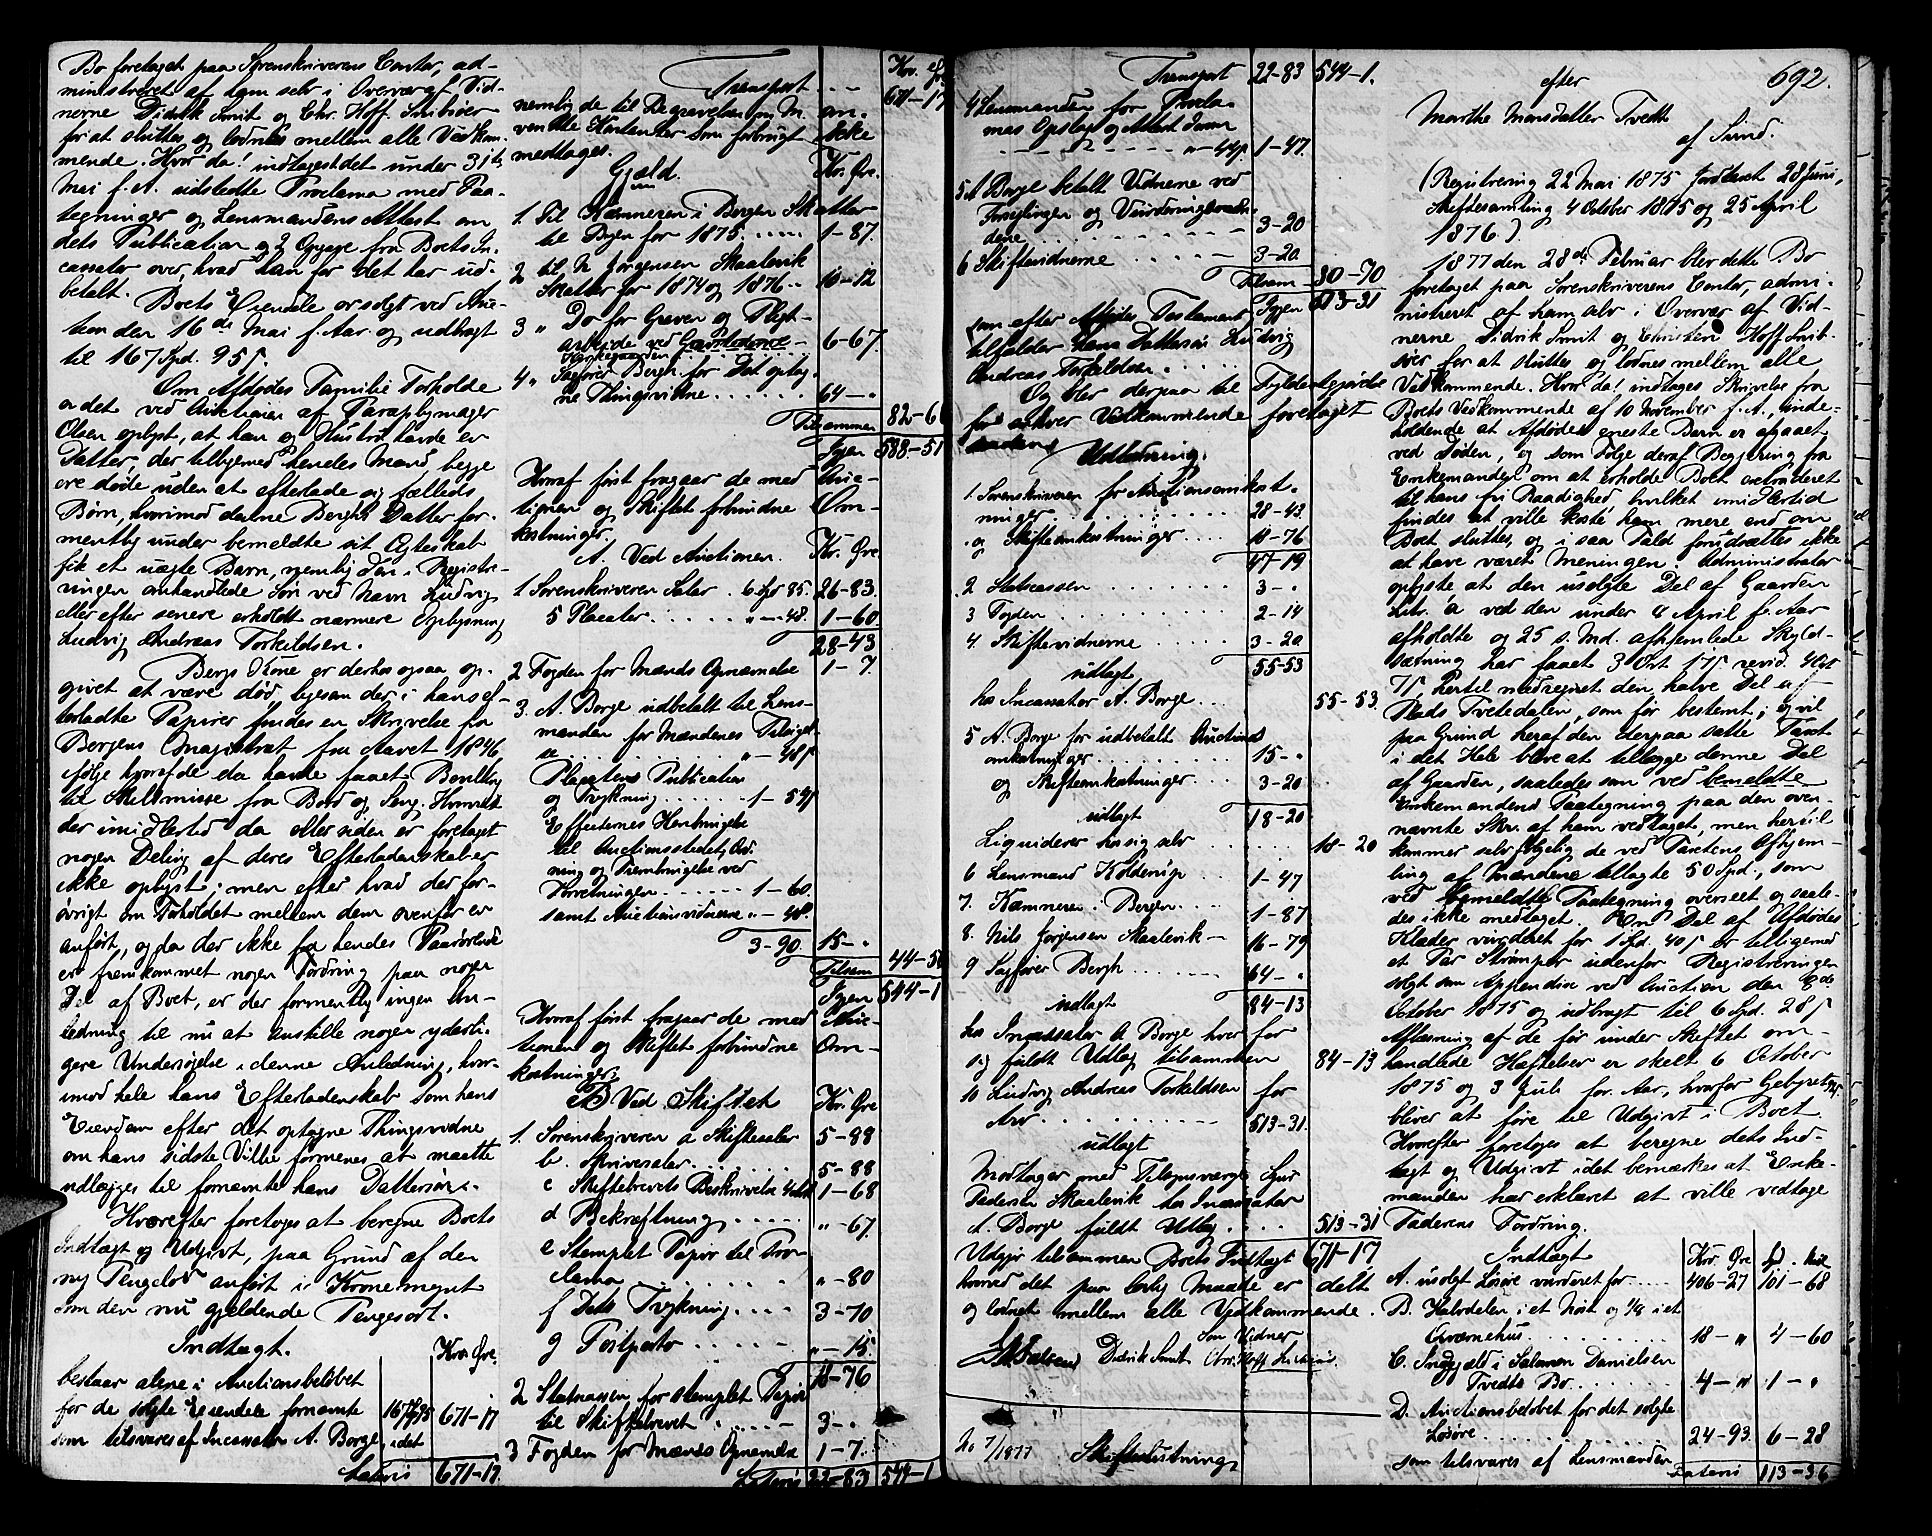 Bo foretaget paa Sorenskriverens Contor, ad-
ministreret af ham selv i Overvær af Vid-
nerne Didrik Smit og Chr. Hoff Smibsøer
for at sluttes og lodnes mellem alle Vedkom-
mende. Hvor da! indtages det under 31te
Mai f. A. udstedte Proclama med Paa-
tegninger og Lensmandens Attest om
dets Publication og 2 Opgave fra Boets In-
cassator over, hvad han for det har ud-
betalt.
Boets Eiendele er solgt ved Auc-
tion den 16de Mai f. Aar og udbragt
til 167 Spd. 95 s
Om Afdødes Familie Forholde
er det ved Auctionen af Paraplymager
Olsen oplyst, at han og Hustru havde en
Datter, der tilligemed hendes Mand, begge
ere døde uden at efterlade sig fælleds
Børn, hvorimod denne Berghs Datter for-
mentlig under bemeldte sit Egteskab
fik et uægte Barn, nemlig den i Registre-
ringen omhandlede Søn ved Navn Ludvig
eller efter senere erholdt nærmere Oplysning
Ludvig Andreas Torkildsen.
Berghs Kone er derhos ogsaa op-
givet at være død, ligesom der i hans ef-
terladte Papirer findes en Skrivelse fra
Bergens Magistrat fra Aaret 1846
ifølge hvoraf de da havde faaet Bevilling
til Skilsmisse fra Bord og Seng. Hvorvidt
der imidlertid da eller siden er foretaget
nogen Deling af deres Efterladenskab er
ikke oplyst; men efter hvad der for-
øvrigt om Forholdet mellem dem ovenfor er
anført, og da der ikke fra hendes Paarørende
er fremkommet nogen Fordring paa nogen
Del af Boet, er der formentlig ingen An-
ledning til nu at anstille nogen yderli-
gere Undersøgelse i denne Anledning, hvor-
imod hele hans Efterladenskab som hans
Eiendom efter det optagne Thingsvidne
om hans sidste Villie formenes at maatte
udlægges til fornævnte hans Dattersøn.
Hvorefter foretoges at beregne Boets
Indtægt og Udgivt, paa Grund af den
ny Pengelov anført i Kronemynt
som den nu gjeldende Pengesort.
Indtægt. Kr. Øre.
bestaar alene i Auctionsbeløbet
for de solgte Eiendele fornævnte 167 95 671-17
som tilsvares af Incassator A. Borge, idet
Lateris 671-17.
Kr. Ør
Transport 671-17
nemlig de til Begravelsen om M. an-
vendte Kostender som forbrugt ikke
medtages.
Gjæld. Kr. Øre.
1. Til Kæmneren i Bergen Skatter
til Byen for 1875 1-87.
2 til N. Jørgensen Skaalevik
Skatter for 1874 og 1876 10-12
3 " Do for Graven og Pligt-
arbeide ved
6-67.
4 " Sagfører Bergh for Det optag-
ne Thingsvidne 64-"
Tilsammen 82-66
Igjen 588-51
Hvoraf først fragaar de med Auc-
tionen og Skiftet forbundne Om-
kostninger.
A. Ved Auctionen. Kr. Øre.
1. Sorenskriveren Salar 6 Spd 85. 26-83.
5 Placater " - 48. 1-60
28-43
2 Fogden for Mænds Opnævnelse 1-7.
3. A. Borge udbetalt til Lens-
manden for Mændenes Tilsigel-
se " - 48 s
Placatens Publication
og Trykning 1-54 s
Effecternes Henbringelse
til Auctionsstedet, Ord-
ning og Frembringelse ved
Forretningen 1-60.
samt Auctionsvidnerne " - 48.
3-90 15-"
Tilsam 44-50
Igjen 544-1
Hvoraf først fragaar de med Auc-
tionen og Skiftet forbundne Om-
kostninger.
B. Ved Skiftet Kr. Øre
1. Sorenskriveren a Skiftesalar 5-88
b. Skriversalar 5-88
c Skiftebrevets Beskrivelse 1-68
d Bekræftning "-67.
e Stemplet Papir til Pro-
clama "-80
f Dets Trykning 3-70
g Postporto "-15.
18-76
2 Statcassen for stemplet Papir
til Skiftebrevet 3-"
3 Fogden for Mænds Opnævnelse 1-7.
Lateris 22-83 544-1
Transport 22-83 544-1.
4 Lensmanden for Procla-
mas Opslag og Attest derom
" 44 s. 1-47.
5 A Borge betalt Vidnerne ved
Forseglingen og Vurderingsmæn-
dene 3-20
6 Skiftevidnerne 3-20.
Tilsam 30-70
Igjen 513-31
som efter Afdødes Testament
tilfalder hans Dattersøn Ludvig
Andreas Torkeldsen.
Og blev derpaa til Fyldestgjørelse
for enhver Vedkommende foretaget
saadan
Udlodning.
1. Sorenskriveren for Auctionsomkost-
ninger 28-43
og Skifteomkostninger 18-76
47-19
2 Statcassen 3-"
3 Fogden 2-14
4. Skiftevidnerne 3-20.
udlagt 55-53
hos Incassator A. Borge 55-53.
5 A. Borge for udbetalt Auctions
omkostninger 15-"
og Skifteomkostninger 3-20
udlagt 18-20
Liquiderer hos sig selv 18-20
6 Lensmand Kolderup 1-47
7. Kæmneren i Bergen 1-87
8. Nils Jørgensen Skaalevik 16-79
9 Sagfører Bergh 64-"
udlagt 84-13
hos Incassator A Borge hver for
sig fuldt Udlæg tilsammen 84-13
10 Ludvig Andreas Torkeldsen for
Arv 513-31.
udlagt
Modtager med Tilsynsværge Sjur
Pedersen Skaalevik hos Incassator
A. Borge fuldt Udlæg 513-31
Udgjør tilsammen Boets Indtægt 671-17.
hvormed det paa lovlig Maade er delt
og lodnet mellem alle Vedkommende.
Som Vidner
Didrik Smit Chr. Hoff
No 7/1877 Skifteslutning
efter 692.
Marthe Monsdatter Tvedt
af Sund.
(Registrering 22 Mai 1875 fortsat 28 Juni,
Skiftesamling 4 October 1875 og 25 April
1876.)
1877 den 28de Februar blev dette Bo
foretaget paa Sorenskriverens Contor, admi-
nistreret af ham selv i Overvær af Vid-
nerne Didrik Smit og Christen Hoff Smib-
søer for at sluttes og lodnes mellem alle
Vedkommende. Hvor da! indtages Skrivelse fra
Boets Vedkommende af 10 November f. A., inde-
holdende at Afdødes eneste Barn er afgaaet
ved Døden, og som Følge deraf Begjering fra
Enkemanden om at erholde Boet extraderet
til hans fri Raadighed, hvilket imidlertid
findes at ville koste ham mere end om
Boet sluttes, og i saa Fald forudsættes ikke
at have været Meningen. Administrator
oplyste at den usolgte Del af Gaarden
Litr. a ved den under 4 April f. Aar
afholdte og 25 s. Md. afhjemlede Skyld-
sætning har faaet 3 Ort 17 s revid. 4 Ort
7 s, hertil medregnet den halve Del af
Plads Tvetedalen, som før bestemt, og vil
paa Grund heraf den derpaa satte Taxt
i det Hele blive at tillægge denne Del
af Gaarden, saaledes som ved bemeldte
Enkemandens Paategning paa den oven-
nævnte Skr. af ham vedtaget, men hertil
kommer selvfølgelig de ved Taxtens Afhjem-
ling af Mændene tillagte 50 Spd., som
ved bemeldte Paategning overseet og saale-
des ikke medtaget. En Del af Afdødes
Klæder vurderet for 1 Spd. 40 s er tilligemed
et Par Strømper udenfor Registreringen
solgt som Appendix ved Auction den 9de
October 1875 og udbragt til 6 Spd. 28 s
Aflæsning af de før under Skiftet om-
handlede Hæftelser er skeet 6 October
1875 og 3 Juli for. Aar, hvorfor Gebyret
bliver at føre til Udgivt i Boet.
Hvorefter foretoges at beregne dets Ind-
tægt og Udgivt idet bemærkes at Enke-
manden har erklæret at ville vedtage
Faderens Fordring.
Indtægt Kr. Øre Spd.
A. usolgt Løsøre vurderet for 406-27 101-68
B. Halvdelen i et Nøst og 1/8 i et
Qværnehus 18-" 4-60
C. Indgjæld i Salamon Danielsen
Tvedts Bo 4-" 1-"
D. Auctionsbeløbet for det solgte
Løsøre 24-93. 6-28
som tilsvares af Lensmanden
Lateris 113-36